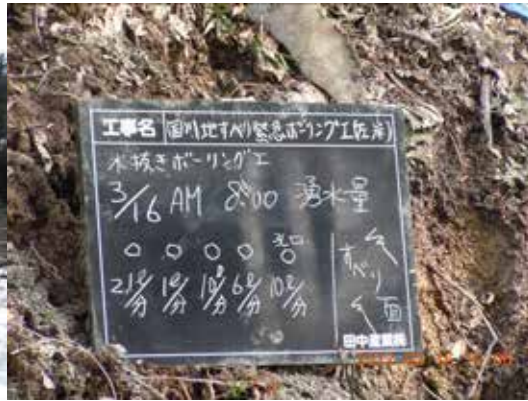 工事名 国川地すべり緊急ボーリング工(左岸)
水抜きボーリング工
3/16 AM 8:00 湧水量
孔口
○ ○ ○ ○ ○
21ℓ/分 1ℓ/分 10ℓ/分 6ℓ/分 10ℓ/分
すべり
面
田中産業㈱